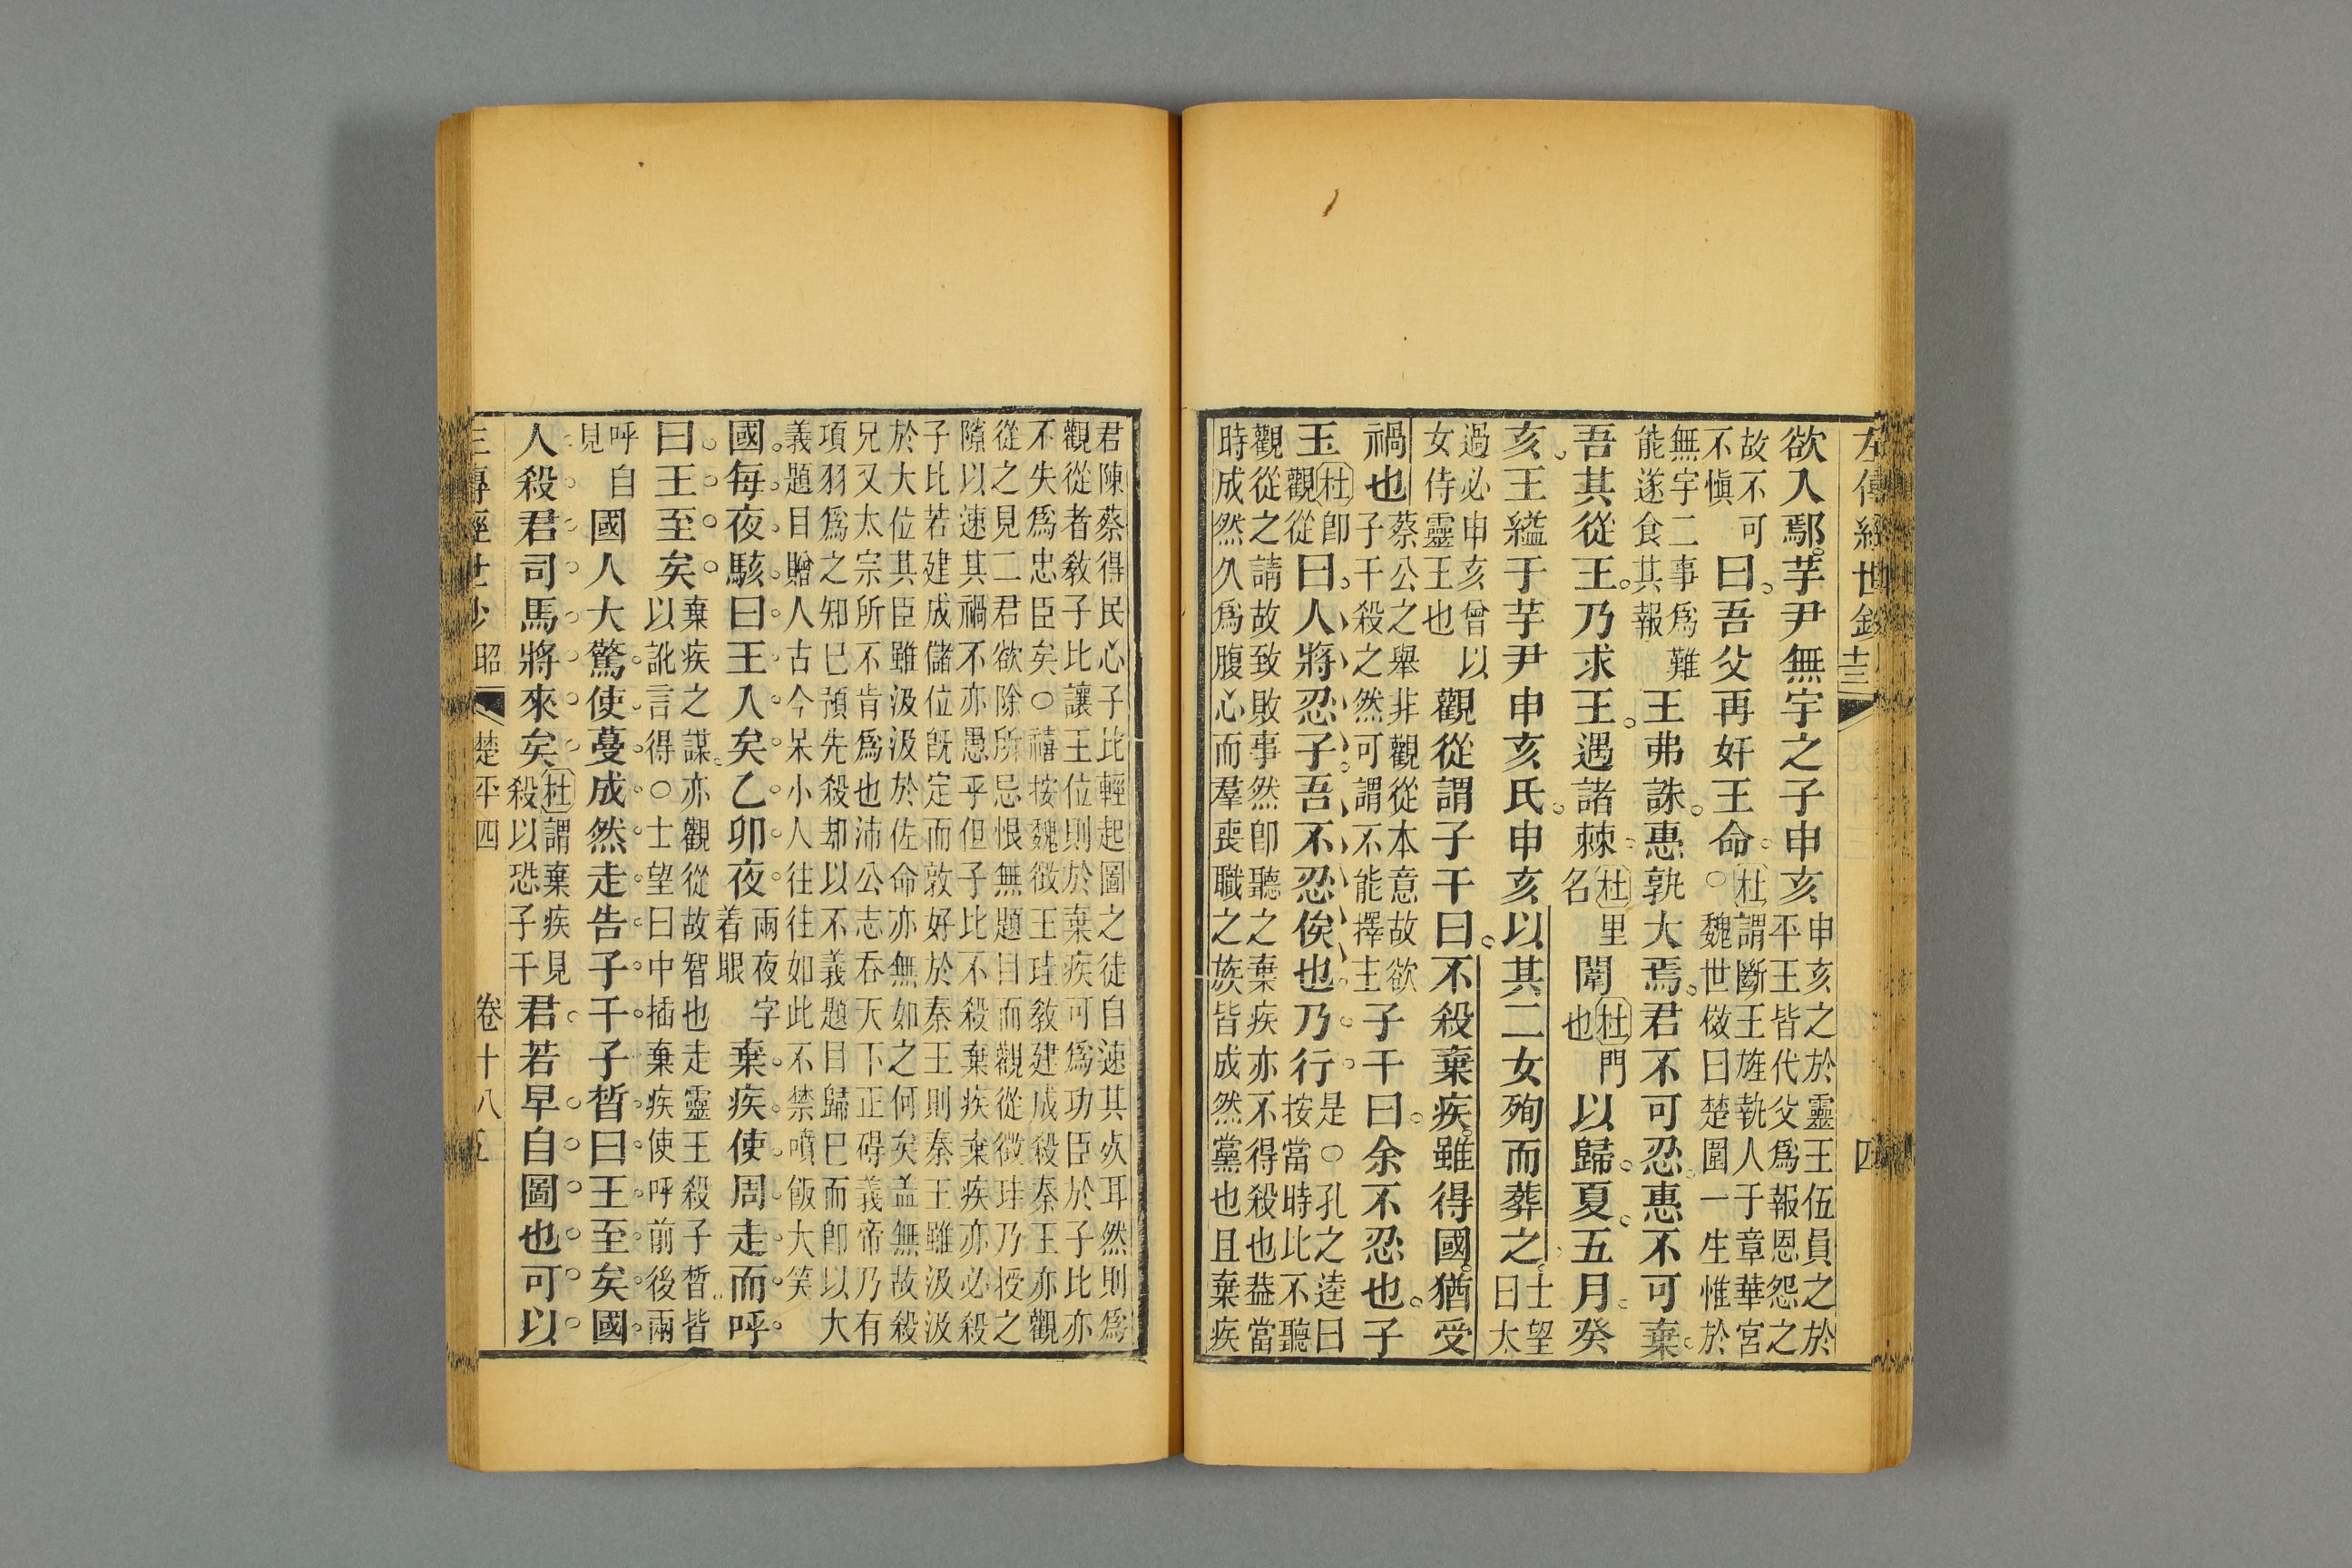 左傳經世鈔 十三 四
欲入鄢芋尹無宇之子申亥申亥之於靈王伍員之於
平王皆代父爲報恩怨之
故不可
不愼
曰吾父再奸王命杜謂斷王旌執人于章華宮
○魏世傚曰楚圍一生惟於
無宇二事爲難
能遂食其報
王弗誅惠孰大焉君不可忍惠不可棄
吾其從王乃求王遇諸棘杜里
名
闈杜門
也
以歸夏五月癸
亥王縊于芋尹申亥氏申亥以其二女殉而葬之士望
曰太
過必申亥曾以
女侍靈王也
觀從謂子干曰不殺棄疾雖得國猶受
禍也蔡公之舉非觀從本意故欲
子干殺之然可謂不能擇主
子干曰余不忍也子
玉杜卽
觀從
曰人將忍子吾不忍俟也乃行是○孔之逵曰
按當時比不聽
觀從之請故致敗事然卽聽之棄疾亦不得殺也葢當
時成然久爲腹心而羣喪職之族皆成然黨也且棄疾
君陳蔡得民心子比輕起圖之徒自速其㱕耳然則爲
觀從者教子比讓王位則於棄疾可爲功臣於子比亦
不失爲忠臣矣○禧按魏徵王珪敎建成殺秦王亦觀
從之見二君欲除所忌恨無題目而觀從徵珪乃授之
隙以速其禍不亦愚乎但子比不殺棄疾棄疾亦必殺
子比若建成儲位旣定而敦好於秦王則秦王雖汲汲
於大位其臣雖汲汲於佐命亦無如之何矣盖無故殺
兄又太宗所不肯爲也沛公志呑天下正碍義帝乃有
項羽爲之知已預先殺却以不義題目歸巳而卽以大
義題目贈人古今呆小人往往如此不禁噴飯大笑
國每夜駭曰王入矣乙卯夜兩夜字
着眼
棄疾使周走而呼
曰王至矣棄疾之謀亦觀從故智也走靈王殺子晳皆
以訛言得○士望曰中插棄疾使呼前後兩
呼自
見
國人大驚使蔓成然走告子干子晳曰王至矣國
人殺君司馬將來矣杜謂棄疾見
殺以恐子干
君若早自圖也可以
昭 楚平四 卷十八 五